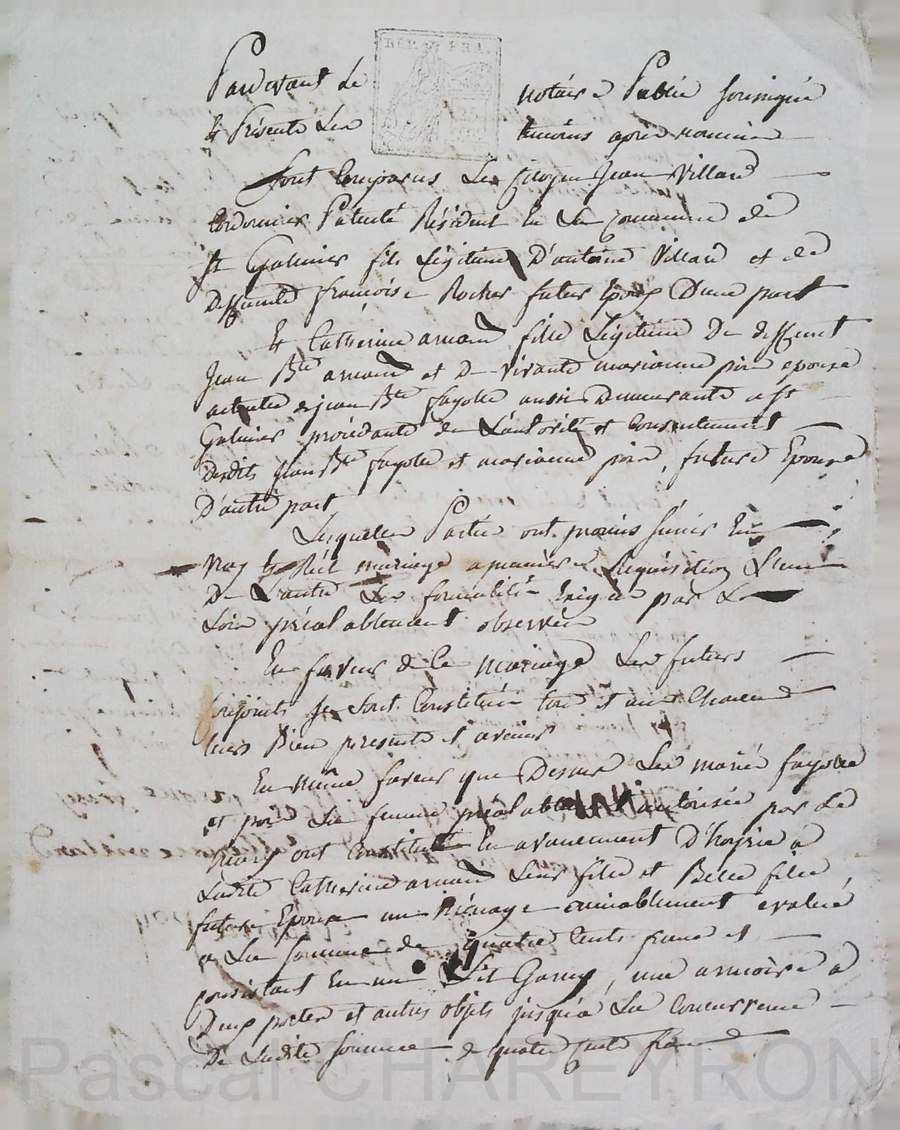 REP. FRA.
Pardevant Le notaire Public Soussigné
Et Présents Les temoins apres nommés
Sont Comparus Le Citoyen Jean Villard
Cordonnier Patenté Résident En La Commune de
St Galmier fils Légitime D'antoine Villard et de
Deffunte françoise Rocher futur Epoux D'une part
Et Catherine arnaud fille Légitime De deffunt
Jean Bte arnaud et De Vivante marianne epouse
actuelle de jean Bte fayolle aussi Demeurante a St
Galmier procédante de L'autorité et Consentement
desdits Jean Bte fayolle et marianne, future Epouse
D'autre part
Lesquelles Parties ont promis S'unir En
Vray Et Réel mariage a premiere Réquisition L'une
De L'autre Les formalités Exigées par Les
Loix préalablement observées
En faveur de Ce mariage Les futurs
Conjoints Se Sont Constitués tous et un Chacun
leurs Biens presents et avenir
En même faveur que Dessus Les mariés fayolle
et La femme préalablement autorisée par Le
mary ont Constitué En avancement D'hoyrie a
Ladite Catherine arnaud Leur fille et Belle fille
future Epouse un Ménage amiablement evalué
a La Somme de quatre Cents francs et
Consistant En un Lit Garny, une armoire a
Deux portes et autres objets jusqu'a La Concurrence
De Ladite Somme de quatre Cents francs
Pascal CHAREYRON